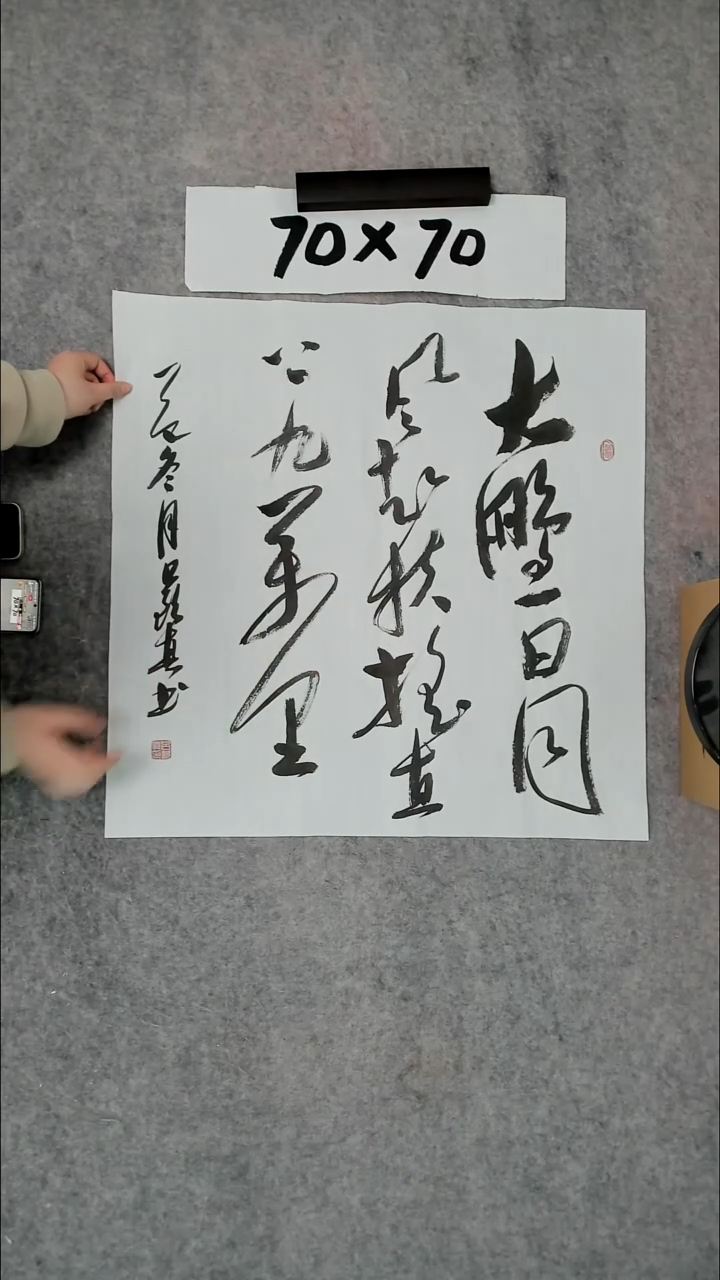 70×70
大鹏一日同
风起扶摇直
上九万里
冬月 书